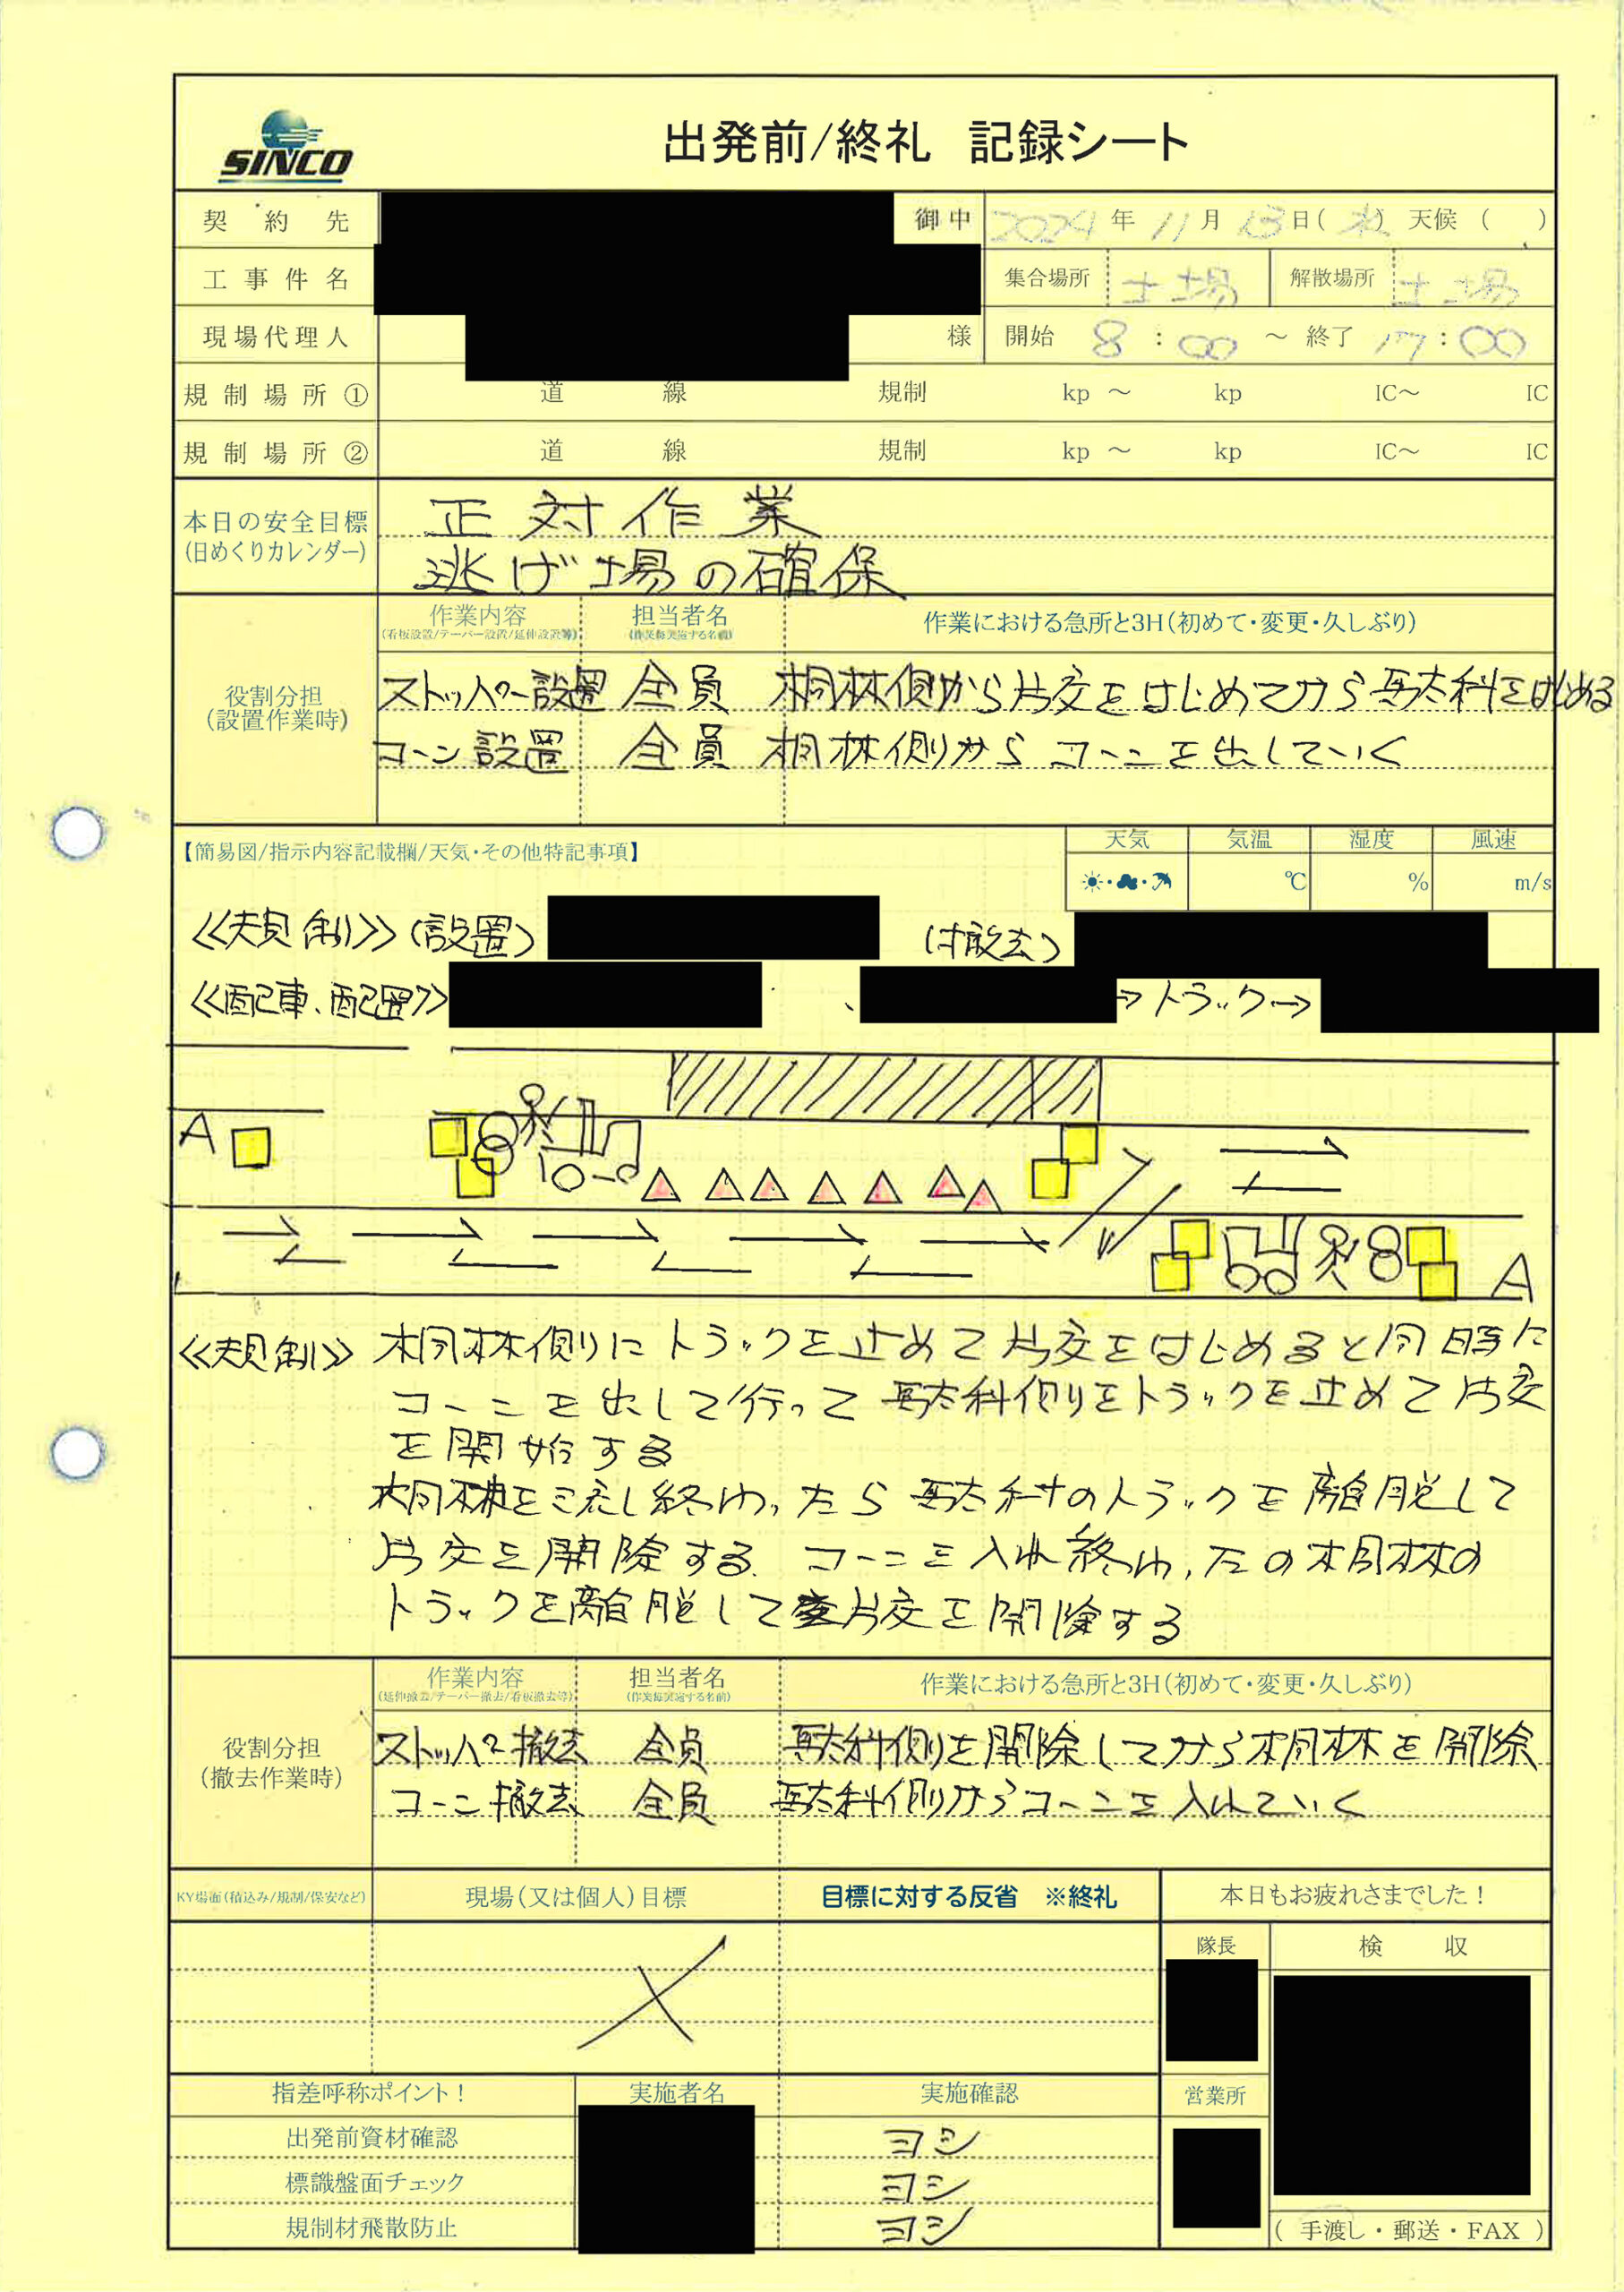 SINCO
出発前/終礼 記録シート
契約先 御中 2024年11月13日(水) 天候( )
工事件名 集合場所 土場 解散場所 土場
現場代理人 様 開始 8:00 ~ 終了 17:00
規制場所① 道 線 規制 kp ~ kp IC~ IC
規制場所② 道 線 規制 kp ~ kp IC~ IC
本日の安全目標
(日めくりカレンダー)
正対作業
逃げ場の確保
作業内容 担当者名 作業における急所と3H(初めて・変更・久しぶり)
(看板設置/テーパー設置/延伸設置等) (作業毎実施する名前)
役割分担
(設置作業時)
ストッパー設置 全員 桐林側から片交をはじめてから駄科をはじめる
コーン設置 全員 桐林側からコーンを出していく
【簡易図/指示内容記載欄/天気・その他特記事項】
天気 気温 湿度 風速
℃ % m/s
≪規制≫(設置) (撤去)
≪配車、配置≫ 、 →トラック→
A
A
≪規制≫ 桐林側にトラックを止めて片交をはじめると同時に
コーンを出して行って駄科側をトラックを止めて片交
を開始する
桐林を流し終わったら駄科のトラックを離脱して
片交を開除する コーンを入れ終わったの桐林の
トラックを離脱して片交を開除する
作業内容 担当者名 作業における急所と3H(初めて・変更・久しぶり)
(延伸撤去/テーパー撤去/看板撤去等) (作業毎実施する名前)
役割分担
(撤去作業時)
ストッパー撤去 全員 駄科側を開除してから桐林を開除
コーン撤去 全員 駄科側からコーンを入れていく
KY場面(積込み/規制/保安など) 現場(又は個人)目標 目標に対する反省 ※終礼 本日もお疲れさまでした!
隊長 検収
指差呼称ポイント! 実施者名 実施確認 営業所
出発前資材確認 ヨシ
標識盤面チェック ヨシ
規制材飛散防止 ヨシ
(手渡し・郵送・FAX)